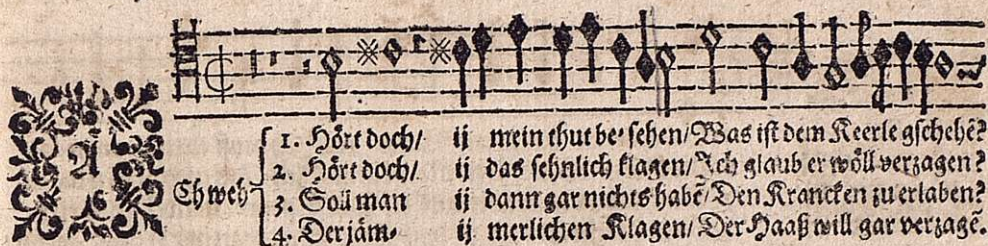 A
Ch weh
1. Hört doch/ ij mein thut be-sehen/ Was ist dem Keerle gschehē?
2. Hört doch/ ij das sehnlich klagen/ Ich glaub er wöll verzagen?
3. Soll man ij dann gar nichts habē/ Den Krancken zu erlaben?
4. Der jäm- ij merlichen Klagen/ Der Haaß will gar verzagē.